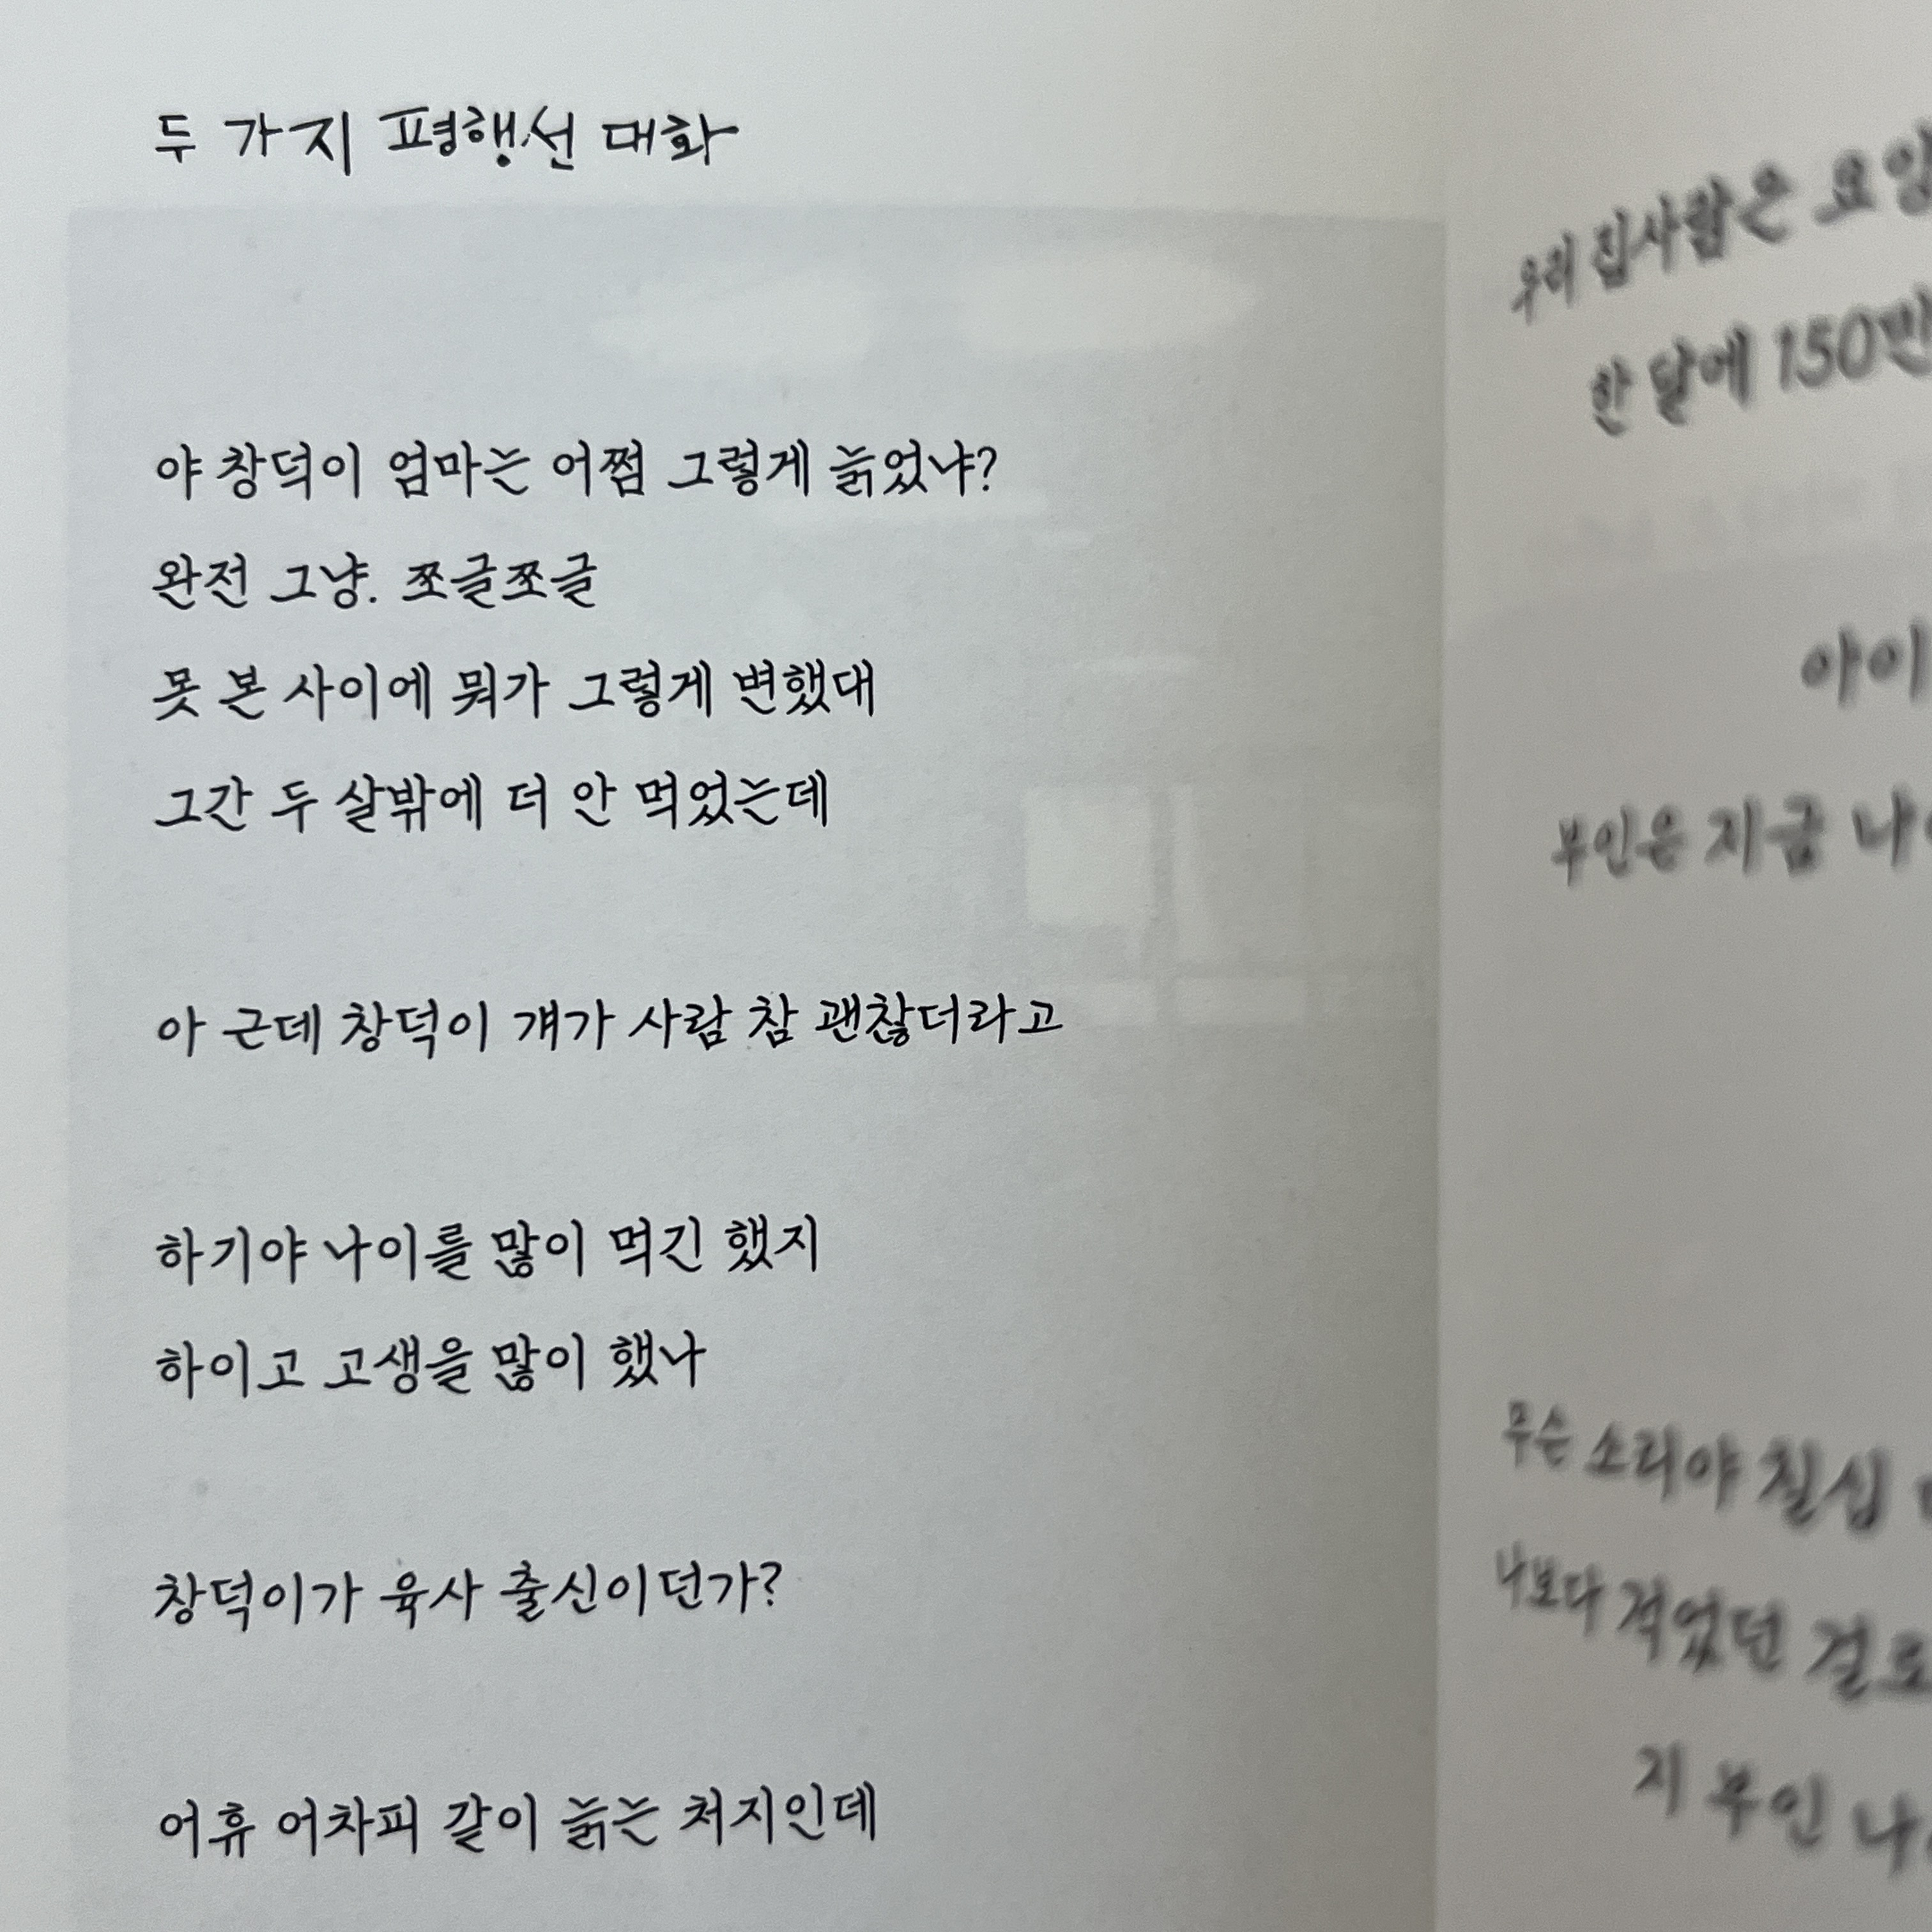 두 가지 평행선 대화
야 창덕이 엄마는 어쩜 그렇게 늙었냐?
완전 그냥. 쪼글쪼글
못 본 사이에 뭐가 그렇게 변했대
그간 두 살밖에 더 안 먹었는데
아 근데 창덕이 걔가 사람 참 괜찮더라고
하기야 나이를 많이 먹긴 했지
하이고 고생을 많이 했나
창덕이가 육사 출신이던가?
어휴 어차피 같이 늙는 처지인데
우리 집사람은
한 달에 150만
아이
부인은 지금
무슨 소리야 칠십
나보다 적었던 걸로
지 부인